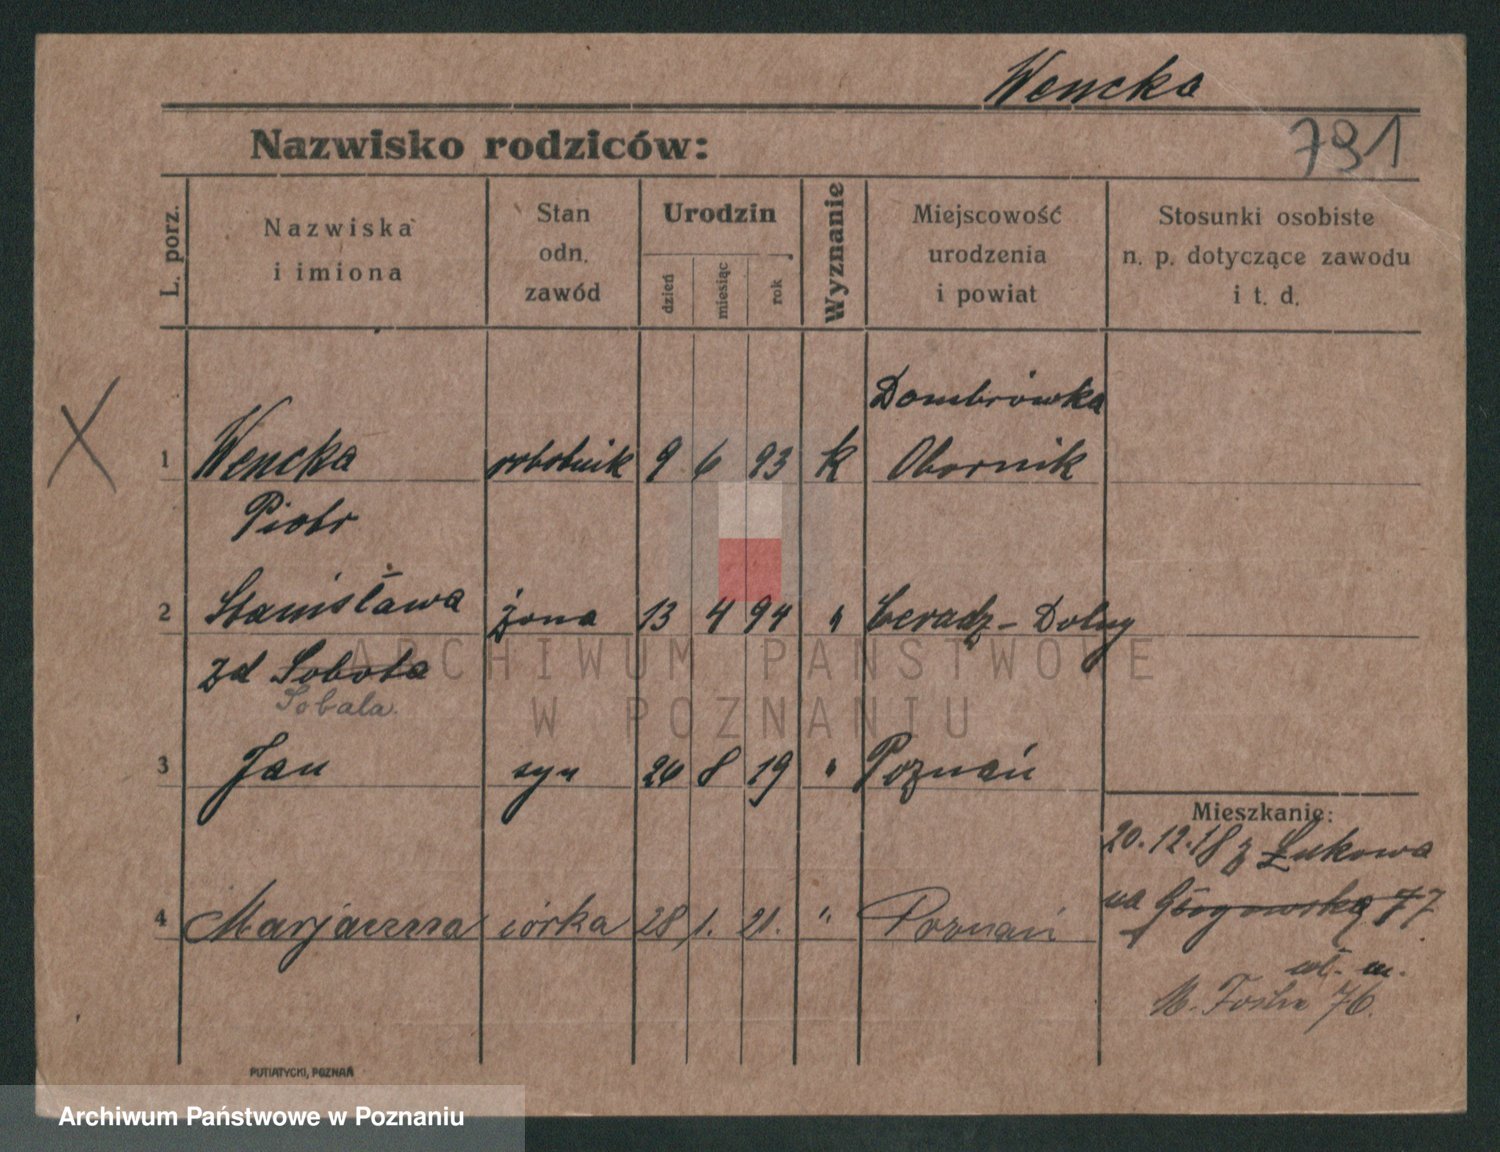 Wencka
Nazwisko rodziców:
791
L. porz.
Nazwiska
i imiona
Stan
odn.
zawód
Urodzin
dzień
miesiąc
rok
Wyznanie
Miejscowość
urodzenia
i powiat
Stosunki osobiste
n. p. dotyczące zawodu
i t. d.
Dombrówka
1 Wencka robotnik 9 6 93 k Obornik
Piotr
2 Stanisława żona 13 4 94 " Ceradz-Dolny
zd Sobota
Sobala.
3 Jan syn 26 8 19 " Poznań
Mieszkanie:
20.12.18 z Łukowa
4 Marjanna córka 28 1. 21. " Poznań
na Głogowską 77
wł. m.
M. Focha 76.
PUTIATYCKI, POZNAŃ
ARCHIWUM PAŃSTWOWE
W POZNANIU
Archiwum Państwowe w Poznaniu